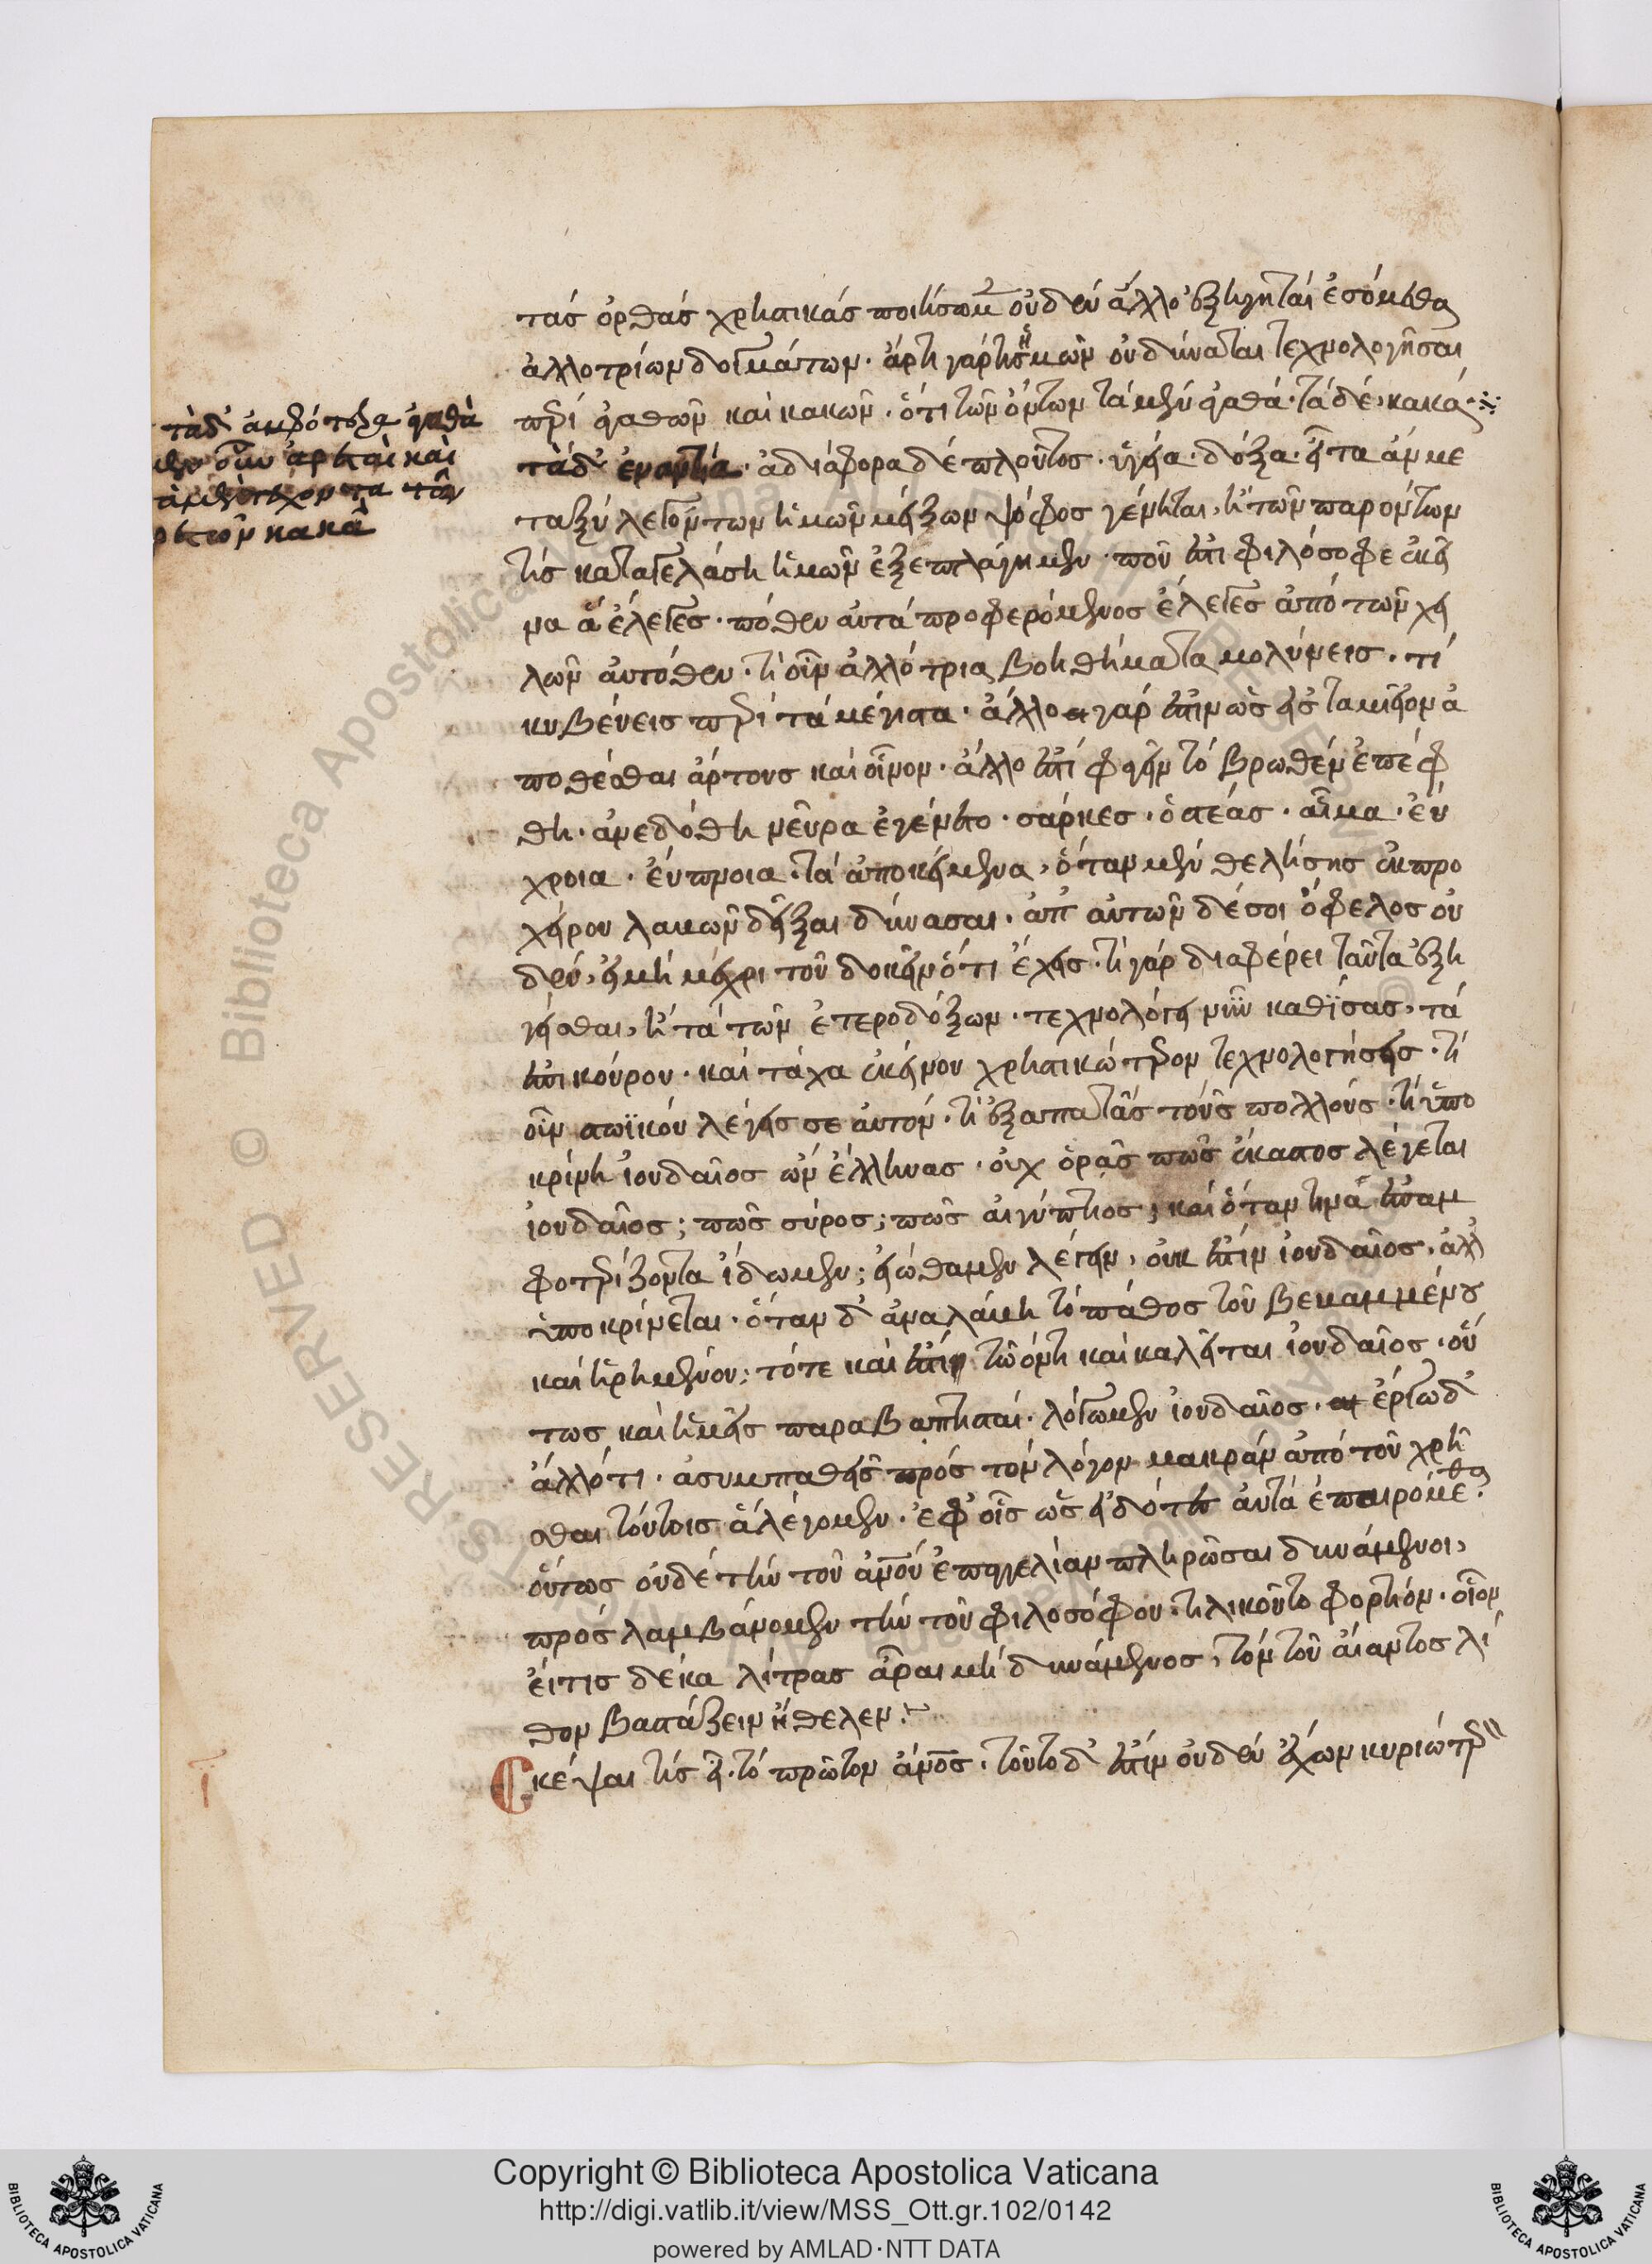 τὰς ὀρθὰς χρηστικὰς ποιήσωμεν οὐδὲν ἄλλο ἐξηγηταὶ ἐσόμεθα
ἀλλοτρίων δογμάτων. ἄρτι γάρ τις ἡμῶν οὐ δύναται τεχνολογῆσαι
περὶ ἀγαθῶν καὶ κακῶν. ὅτι τῶν ὄντων τὰ μὲν ἀγαθά. τὰ δὲ, κακά
τὰ δ' ἐναντία. ἀδιάφορα δὲ πλοῦτος. ὑγεία. δόξα. εἶτα ἂν με
ταξὺ λεγόντων ἡμῶν μείζων ψόφος γένηται, ἢ τῶν παρόντων
τὶς καταγελάση ἡμῶν ἐξεπλάγημεν. ποῦ ἐστι φιλόσοφε ἐκεῖ
να ἃ ἔλεγες. πόθεν αὐτὰ προφερόμενος ἔλεγες ἀπὸ τῶν χει
λῶν αὐτόθεν. τί οὖν ἀλλότρια βοηθήματα μολύνεις. τί
κυβεύεις περὶ τὰ μέγιστα. ἄλλο γάρ ἐστιν ὡς εἰς ταμιεῖον ἀ
ποθέσθαι ἄρτους καὶ οἶνον. ἄλλο ἐστὶ φαγεῖν τὸ βρωθὲν ἐπέφ
θη. ἀνεδόθη νεῦρα ἐγένετο. σάρκες. ὀστέας. αἷμα. εὔ
χροια. εὔπνοια. τὰ ἀποκείμενα, ὅταν μὲν θελήσῃς ἐκ προ
χείρου λαβὼν δεῖξαι δύνασαι. ἀπ' αὐτῶν δέ σοι ὄφελος οὐ
δέν, εἰ μὴ μέχρι τοῦ δοκεῖν ὅτι ἔχεις. τί γὰρ διαφέρει ταῦτα ἐξη
γεῖσθαι, ἢ τὰ τῶν ἑτεροδόξων. τεχνολόγει νῦν καθίσας, τὰ
ἐπικούρου. καὶ τάχα ἐκείνου χρηστικώτερον τεχνολογήσεις. τί
οὖν στωϊκὸν λέγεις σε αὐτόν. τί ἐξαπατᾶς τοὺς πολλούς. τί ὑπο
κρίνῃ ἰουδαῖος ὢν ἕλληνας. οὐχ ὁρᾷς πῶς ἕκαστος λέγεται
ἰουδαῖος; πῶς σύρος; πῶς αἰγύπτιος; καὶ ὅταν τινὰ ἐπαμ
φοτερίζοντα ἴδωμεν; εἰώθαμεν λέγειν, οὐκ ἔστιν ἰουδαῖος. ἀλλ'
ὑποκρίνεται. ὅταν δ' ἀναλάβῃ τὸ πάθος τοῦ βεβαμμένου
καὶ ᾑρημένου; τότε καὶ ἔστι τῷ ὄντι καὶ καλεῖται ἰουδαῖος. οὕ
τως καὶ ἡμεῖς παραβαπτισταί. λόγῳ μὲν ἰουδαῖος. ἔργῳ δ'
ἄλλό τι. ἀσυμπαθεῖς πρὸς τὸν λόγον μακρὰν ἀπὸ τοῦ χρῆ
σθαι τούτοις ἃ λέγομεν. ἐφ' οἷς ὡς εἰδότες αὐτὰ ἐπαιρόμεθα.
οὕτως οὐδὲ τὴν τοῦ ἀνου ἐπαγγελίαν πληρῶσαι δυνάμενοι,
προσλαμβάνομεν τὴν τοῦ φιλοσόφου. τηλικοῦτο φορτίον. οἷον
εἴ τις δέκα λίτρας ἆραι μὴ δυνάμενος, τὸν τοῦ αἴαντος λί
θον βαστάζειν ἤθελεν.
Σκέψαι τίς εἶ. τὸ πρῶτον ἄνος. τοῦτο δ' ἔστιν οὐδὲν ἔχων κυριώτερον
τὰ δ' ἀμφότερα ἀγαθὰ
μὲν οὖν ἀρεταὶ καὶ
τὰ μετέχοντα τῶν
ἀρετῶν κακὰ